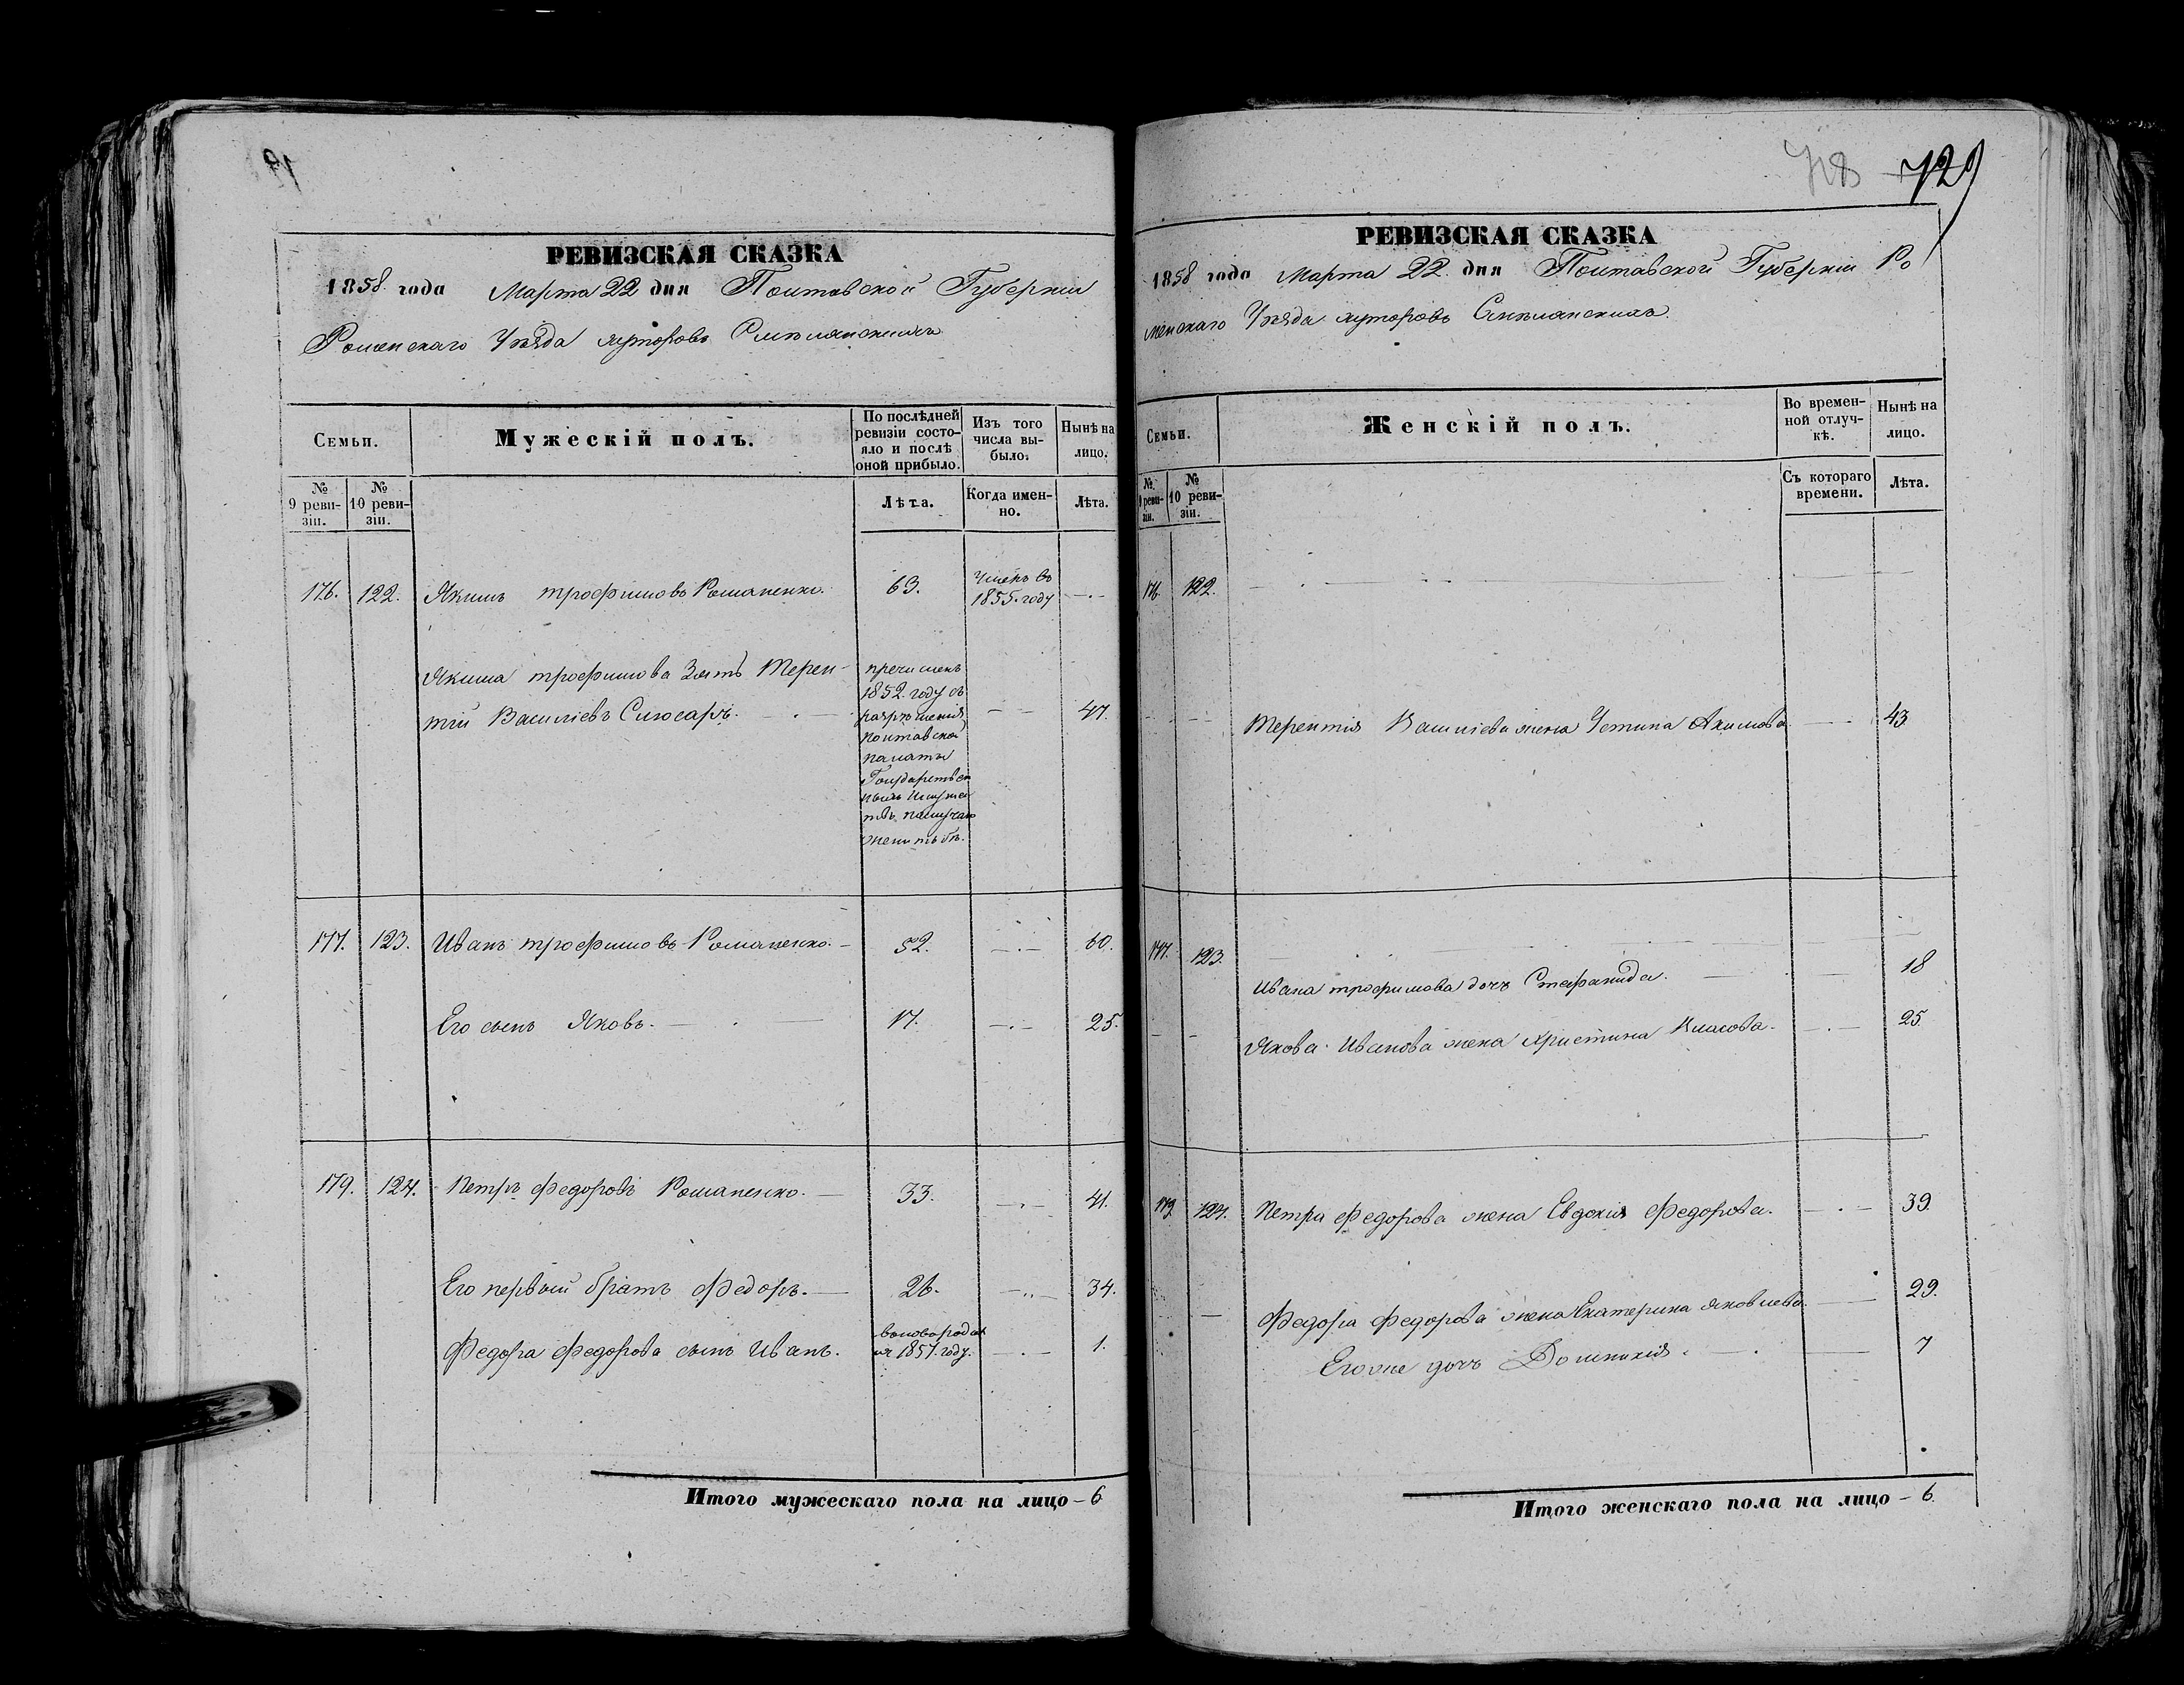 РЕВИЗСКАЯ СКАЗКА
1858. года Марта 22 дня Полтавской Губерніи
Роменскаго Уѣзда хуторовъ Смѣлянскихъ
Семьи.
Мужескій полъ.
По послѣдней
ревизіи состо-
яло и послѣ
оной прибыло.
Изъ того
числа вы-
было.
Нынѣ на
лицо.
№
9 реви-
зіи.
№
10 реви-
зіи.
Лѣта.
Когда имен-
но.
Лѣта.
176. 122. Якимъ трофимовъ Романенко. 63. Умеръ въ
1855. году
Якима трофимова Зять Терен-
тій Василіевъ Слюсарь. 47.
пречисленъ
1852. году съ
разрѣшенія
Полтавской
палаты
Государствен
ныхъ Имуще
ствъ по случаю
женитьбѣ.
177. 123. Иванъ трофимовъ Романенко. 52. 60.
Его сынъ Яковъ. 17. 25.
179. 124. Петръ Федоровъ Романенко. 33. 41.
Его первый братъ Федоръ. 26. 34.
Федора Федорова сынъ Иванъ. 1.
новорожден
въ 1857. году.
Итого мужескаго пола на лицо - 6
728 729
РЕВИЗСКАЯ СКАЗКА
1858 года Марта 22. дня Полтавской Губерніи Ро
менскаго Уѣзда хуторовъ Смѣлянскихъ.
Семьи.
Женскій полъ.
Во времен-
ной отлуч-
кѣ.
Нынѣ на
лицо.
№
9 реви-
зіи.
№
10 реви-
зіи.
Съ котораго
времени.
Лѣта.
176. 122.
Терентія Василіева жена Устина Акимова 43
177. 123.
Ивана трофимова дочь Стефанида. 18
Якова Иванова жена Христина Власова. 25.
179. 124. Петра Федорова жена Евдокія Федорова. 39.
Федора Федорова жена Екатерина Яковлева. 29.
Его же дочь Домникія. 7
Итого женскаго пола на лицо - 6.